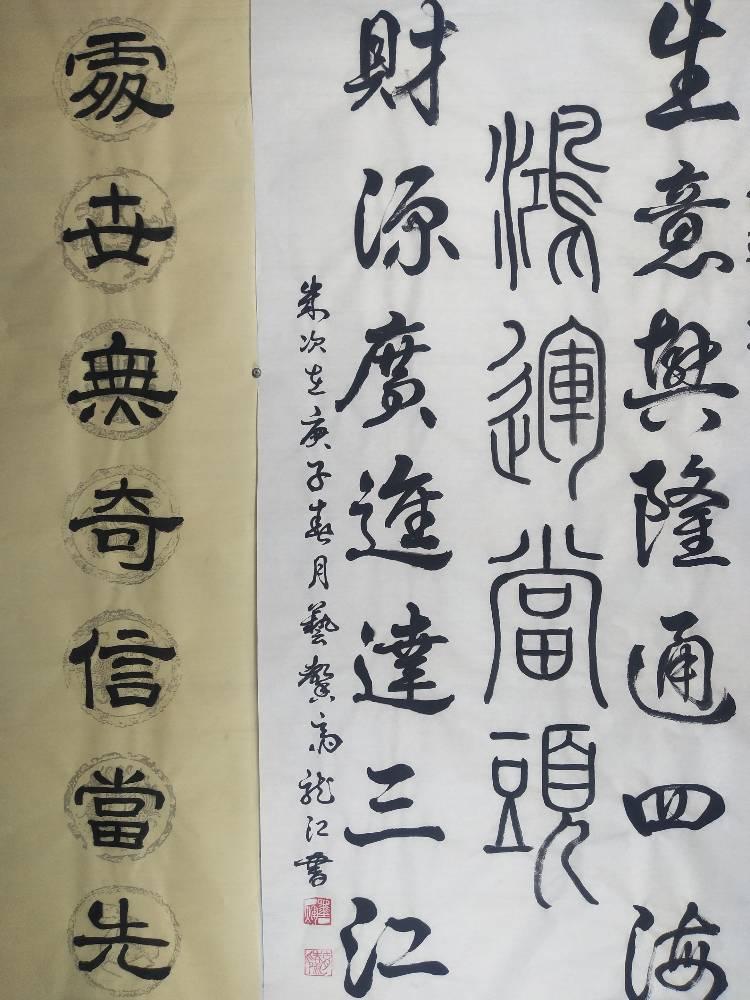 生意興隆通四海
鴻運當頭
財源廣進達三江
歲次在庚子春月藝馨高龍江書
處世無奇信當先